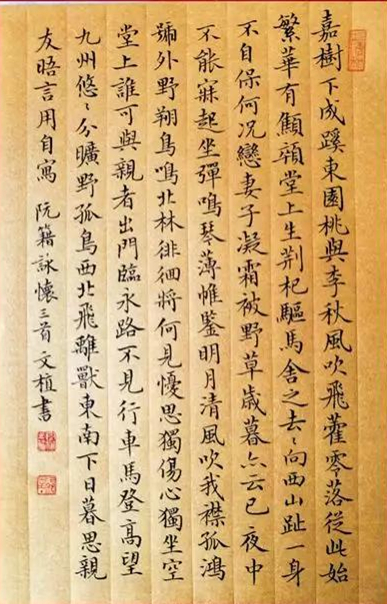 嘉樹下成蹊東園桃與李秋風吹飛藿零落從此始
繁華有顦顇堂上生荆杞驅馬舍之去〻向西山趾一身
不自保何況戀妻子凝霜被野草歲暮亦云已夜中
不能寐起坐彈鳴琴薄帷鑒明月清風吹我襟孤鴻
號外野翔鳥鳴北林徘徊將何見憂思獨傷心獨坐空
堂上誰可與親者出門臨永路不見行車馬登高望
九州悠〻分曠野孤鳥西北飛離獸東南下日暮思親
友晤言用自寫 阮籍詠懷三首 文植書